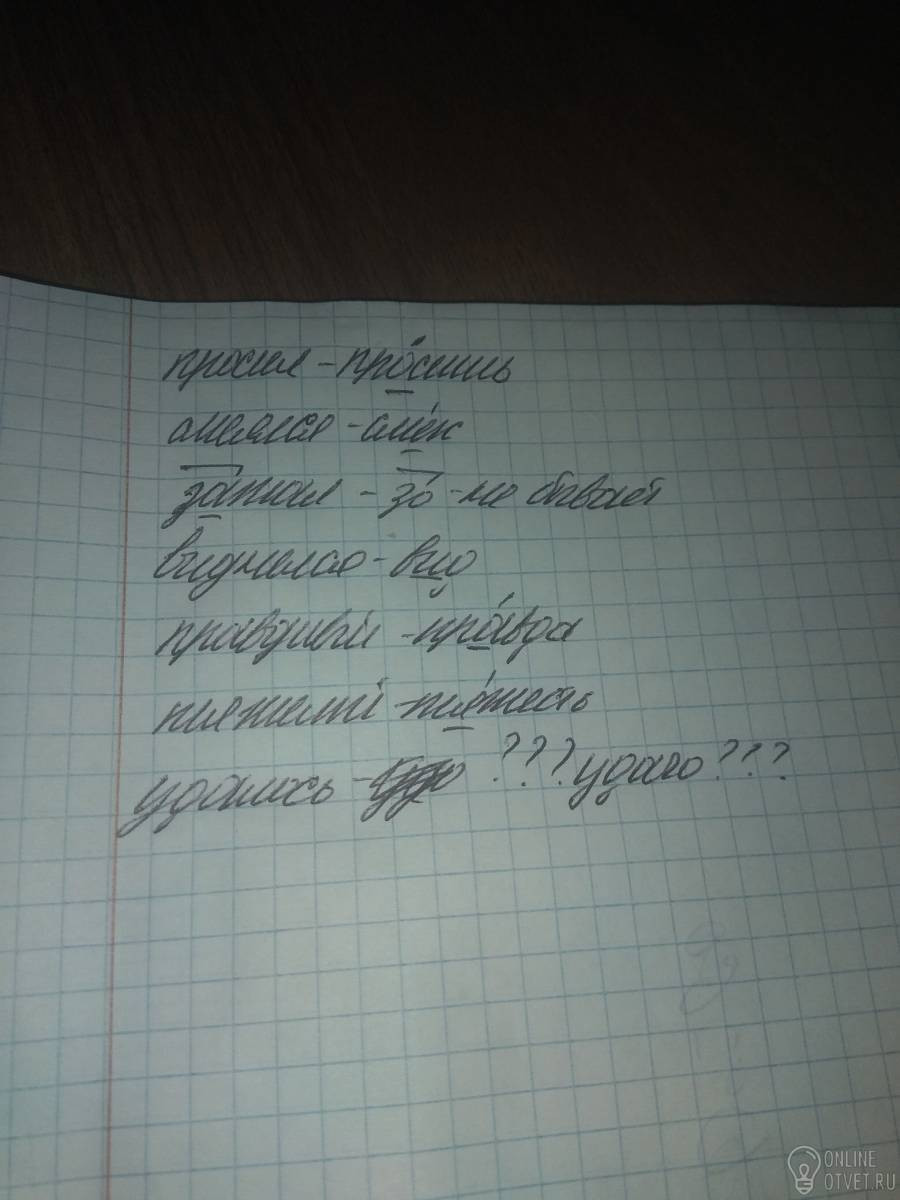 просил - про́сишь
смеялся - сме́х
зажил - зо́ - не бывает
виднелся - вид
правдивый - пра́вда
тяжелый - тя́жесть
удались - ??? удало???
ONLINE
OTVET.RU